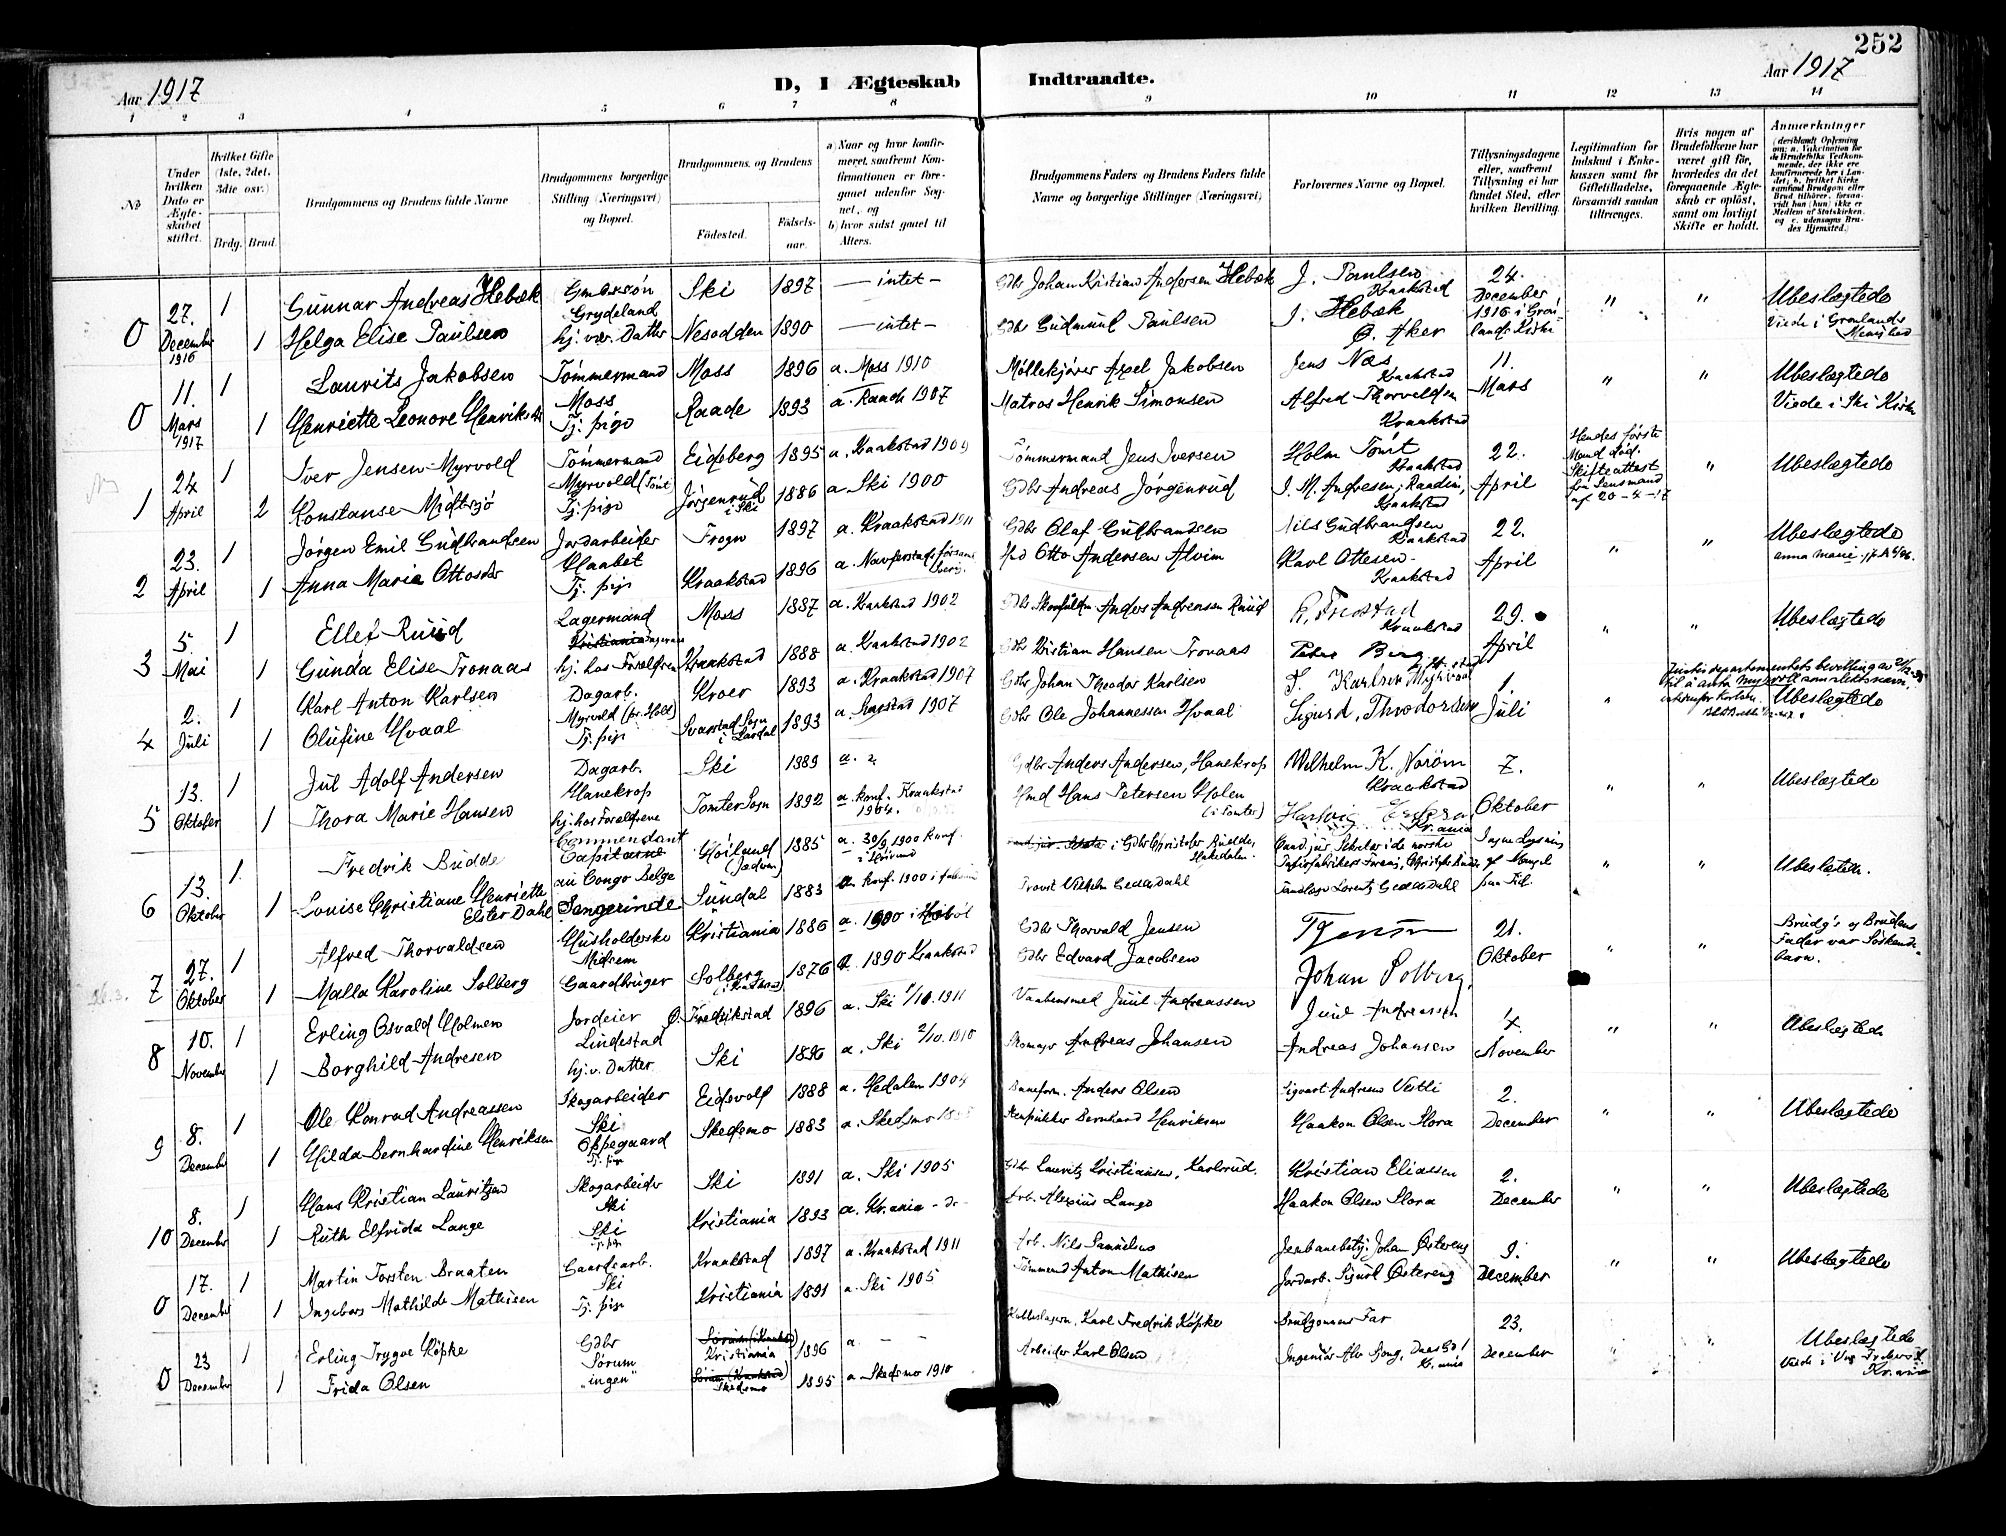 252
Aar 1917
D, I Ægteskab Indtraadte.
Aar 1917
1 2 3 4 5 6 7 8 9 10 11 12 13 14
No
Under hvilken Dato er Ægteskabet stiftet.
Hvilket Gifte (1ste, 2det, 3die osv.)
Brdg. Brud.
Brudgommens og Brudens fulde Navne
Brudgommens borgerlige Stilling (Næringsvei) og Bopæl.
Brudgommens og Brudens
Fødested.
Fødselsaar.
a) Naar og hvor konfirmeret, saafremt Konfirmationen er foregaaet udenfor Sognet, og
b) hvor sidst gaaet til Alters.
Brudgommens Faders og Brudens Faders fulde Navne og borgerlige Stillinger (Næringsvei)
Forlovernes Navne og Bopæl.
Tillysningsdagene eller, saafremt Tillysning ei har fundet Sted, efter hvilken Bevilling.
Legitimation for Indskud i Enkekassen samt for Giftetilladelse, forsaavidt saadan tiltrænges.
Hvis nogen af Brudefolkene har været gift før, hvorledes da det foregaaende Ægteskab er opløst, samt om lovligt Skifte er holdt.
Anmærkninger
0 27. December 1916 1 Gunnar Andreas Hebæk Grydeland Ski 1897 — intet — Gdbr Johan Kristian Andersen Hebæk J. Paulsen Kraakstad 24. December 1916 i Grønlands Kirke " " Ubeslægtede
1 Helga Elise Paulsen hj. vær. Datter Nesodden 1890 — intet — Gdbr Gudmund Paulsen J. Hebæk Ø. Aker Viede i Grønlands Menighed
0 11. Mars 1917 1 Laurits Jakobsen Tømmermand Moss Moss 1896 a. Moss 1910 Møllekjører Axel Jakobsen Jens Næs Kraakstad 11. Mars " " Ubeslægtede
1 Henriette Leonore Henriksen Tj. pige Raade 1893 a. Raade 1907 Matros Henrik Simonsen Alfred Thorvaldsen Kraakstad Viede i Ski Kirke
1 24 April 1 Iver Jensen Myrvold Tømmermand Myrvold (Tomt) Eidsberg 1895 a. Kraakstad 1909 Tømmermand Jens Iversen Holm Tomt Kraakstad 22. April Hendes første Mand død. Skifteattest fra Lensmand af 20-4-17 " Ubeslægtede
2 Konstanse Midtsjø Tj. pige Jørgenrud i Ski 1886 a Ski 1900 Gdbr Andreas Jørgenrud J. M. Andresen, Kraakstad
2 23. April 1 Jørgen Emil Gudbrandsen Jordarbeider Haabet Frogn 1897 a. Kraakstad 1911 Gdbr Olaf Gulbrandsen Nils Gudbrandsen Kraakstad 22. April " " Ubeslægtede
1 Anna Marie Ottosdr Tj. pige Kraakstad 1896 Otto Andersen Alvim Karl Ottesen Kraakstad
3 5. Mai 1 Ellef Ruud Lagermand Kristiania Moss 1887 a. Kraakstad 1902 Anders Andreassen Ruud Kraakstad 29. April " " Ubeslægtede
1 Gunda Elise Tronaas hj. hos Forældrene Kraakstad 1888 a. Kraakstad 1902 Gdbr Kristian Hansen Tronaas Peder Berg
4 2. Juli 1 Karl Anton Karlsen Dagarb. Myrvold (pr. Holt) Kroer 1893 a. Kraakstad 1907 Gdbr Johan Theodor Karlsen T. Karlsen Myrvold 1. Juli " Ubeslægtede
1 Olufine Hvaal Tj. pige Svarstad Sogn i Lardal 1893 a. Svarstad 1907 Gdbr Ole Johannessen Hvaal Sigurd Theodorsen
5 13. Oktober 1 Jul Adolf Andersen Dagarb. Hanekrop Ski 1889 a. Gdbr Anders Andersen, Hanekrop Wilhelm K. Norøm Kraakstad 7. Oktober " " Ubeslægtede
1 Thora Marie Hansen hj. hos Forældrene Tomter Sogn 1892 a. konf. Kraakstad 1904. Hmd Hans Petersen Holen (i Tomter) Hartvig
6 13. Oktober 1 Fredrik Budde Commendant Capitaine au Congo Belge Høiland (Jædren) 1885 a. 30/9 1900 konf. Kr.ania " " Ubeslægtede.
1 Louise Christiane Henriette Elster Dahl Sangerinde Sundal 1883 a. konf. 1900 Provst Vilhelm Dahl
7 27. Oktober 1 Alfred Thorvaldsen Husholderske Midsem Kristiania 1886 a. 1900 i Hobøl Gdbr Thorvald Jensen T. Jensen 21. Oktober " " Brudg's og Brudens Fader var Søskendebarn.
1 Malla Karoline Solberg Gaardbruger Solberg 1876 a. 1890 Kraakstad Gdbr Edvard Jacobsen Johan Solberg.
8 10. November 1 Erling Osvald Holmen Jordeier Lindestad Ø. Fredrikstad 1896 a. Ski 1/10. 1911 Vaabensmed Juul Andreassen Juul Andreassen 4. November " " Ubeslægtede
1 Borghild Andresen hj. v. Datter Ski 1896 a. Ski 2/10. 1910 Skomager Andreas Johansen Andreas Johansen
9 8. December 1 Ole Konrad Andreassen Skogarbeider Ski Eidsvold 1888 a. Hedalen 1904 Baneform. Anders Olsen Sigvart Andreas Vestli 2. December " " Ubeslægtede
1 Hilda Bernhardine Henriksen Oppegaard Tj. pige Skedsmo 1883 a. Skedsmo Stenpukker Bernhard Henriksen Haakon Olsen Slora
10 8. December 1 Hans Kristian Lauritzen Skogarbeider Ski Ski 1891 a. Ski 1905 Gdbr Lauritz Kristiansen, Karlsrud. Kristian Eliassen 2. December " " Ubeslægtede
1 Ruth Elfrida Lange Ski Tj. pige Kristiania 1893 a. Kr.ania Arb. Alexius Lange Haakon Olsen Slora
0 17. December 1 Martin Torsten Braaten Gaardsarb. Ski Kraakstad 1897 a. Kraakstad 1911 Arb. Nils Samuelsen Jernbanebetj. Johan Østereng 9. December " " Ubeslægtede
1 Ingeborg Mathilde Mathisen Tj. pige Kristiania 1891 a. Ski 1905 Tømmermd Anton Mathisen Jordarb. Sigurd Østereng
0 23 December 1 Erling Trygve Køpke Gdbr Sørum Kristiania 1896 a. — — Karl Fredrik Køpke Brudgommens Far 23. December " " Ubeslægtede
1 Frida Olsen "ingen" Skedsmo 1895 a Skedsmo 1910 Arbeider Karl Olsen Ingeniør Alv Kr.ania